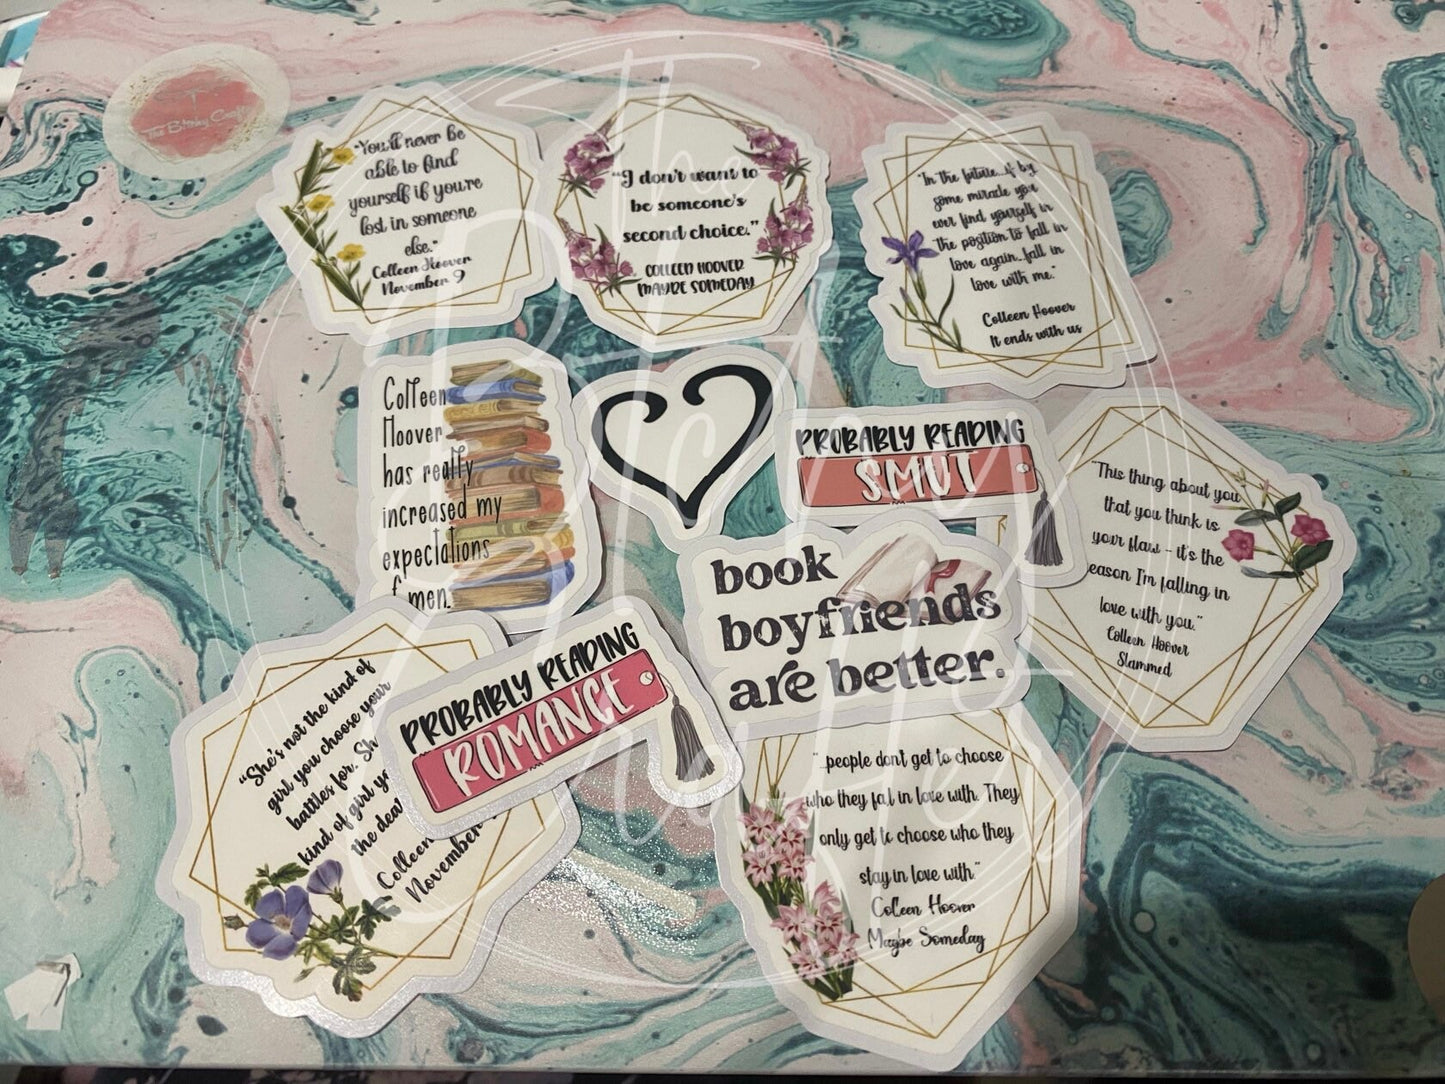 The Bitchy Crafter
"You'll never be
able to find
yourself if you're
lost in someone
else."
Colleen Hoover
November 9
"I don't want to
be someone's
second choice."
COLLEEN HOOVER
MAYBE SOMEDAY
"In the future...if by
some miracle you
ever find yourself in
the position to fall in
love again..fall in
love with me."
Colleen Hoover
It ends with us
Colleen
Hoover
has really
increased my
expectations
f men.
PROBABLY READING
SMUT
"This thing about you
that you think is
your flaw - it's the
eason I'm falling in
love with you."
Colleen Hoover
Slammed
book
boyfriends
are better.
PROBABLY READING
ROMANCE
"She's not the kind of
girl you choose your
battles for. Sh
kind of girl yo
the dea
Colleen
November
"...people don't get to choose
who they fal.l in love with. They
only get to choose who they
stay in love with."
Colleen Hoover
Maybe Someday